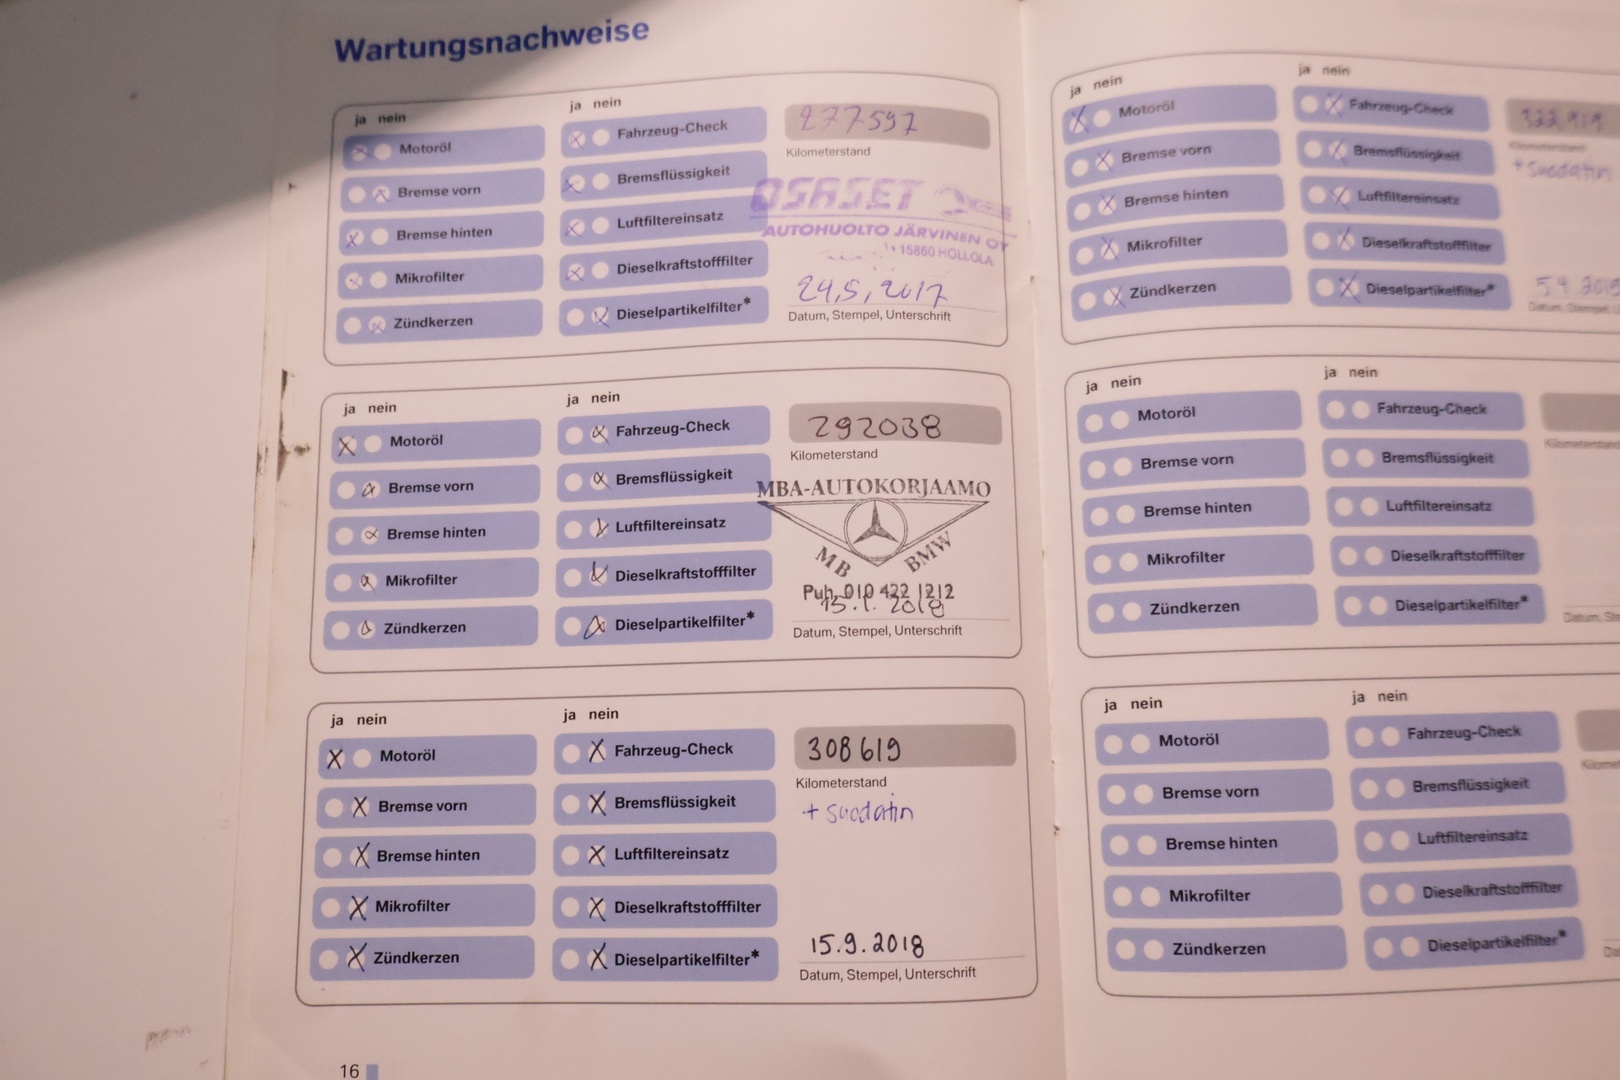 Wartungsnachweise
ja nein
Motoröl
Bremse vorn
Bremse hinten
Mikrofilter
Zündkerzen
ja nein
Fahrzeug-Check
Bremsflüssigkeit
Luftfiltereinsatz
Dieselkraftstofffilter
Dieselpartikelfilter*
277597
Kilometerstand
OSASET
AUTOHUOLTO JÄRVINEN OY
15860 HOLLOLA
24,5,2017
Datum, Stempel, Unterschrift
ja nein
Motoröl
Bremse vorn
Bremse hinten
Mikrofilter
Zündkerzen
ja nein
Fahrzeug-Check
Bremsflüssigkeit
Luftfiltereinsatz
Dieselkraftstofffilter
Dieselpartikelfilter*
292038
Kilometerstand
MBA-AUTOKORJAAMO
MB BMW
Puh. 010 422 1212
15.1. 2018
Datum, Stempel, Unterschrift
ja nein
Motoröl
Bremse vorn
Bremse hinten
Mikrofilter
Zündkerzen
ja nein
Fahrzeug-Check
Bremsflüssigkeit
Luftfiltereinsatz
Dieselkraftstofffilter
Dieselpartikelfilter*
308619
Kilometerstand
+ suodatin
15.9.2018
Datum, Stempel, Unterschrift
16
ja nein
Motoröl
Bremse vorn
Bremse hinten
Mikrofilter
Zündkerzen
ja nein
Fahrzeug-Check
Bremsflüssigkeit
Luftfiltereinsatz
Dieselkraftstofffilter
Dieselpartikelfilter*
Kilometerstand
+ suodatin
Datum, Stempel,
ja nein
Motoröl
Bremse vorn
Bremse hinten
Mikrofilter
Zündkerzen
ja nein
Fahrzeug-Check
Bremsflüssigkeit
Luftfiltereinsatz
Dieselkraftstofffilter
Dieselpartikelfilter*
Kilometerstand
Datum,
ja nein
Motoröl
Bremse vorn
Bremse hinten
Mikrofilter
Zündkerzen
ja nein
Fahrzeug-Check
Bremsflüssigkeit
Luftfiltereinsatz
Dieselkraftstofffilter
Dieselpartikelfilter*